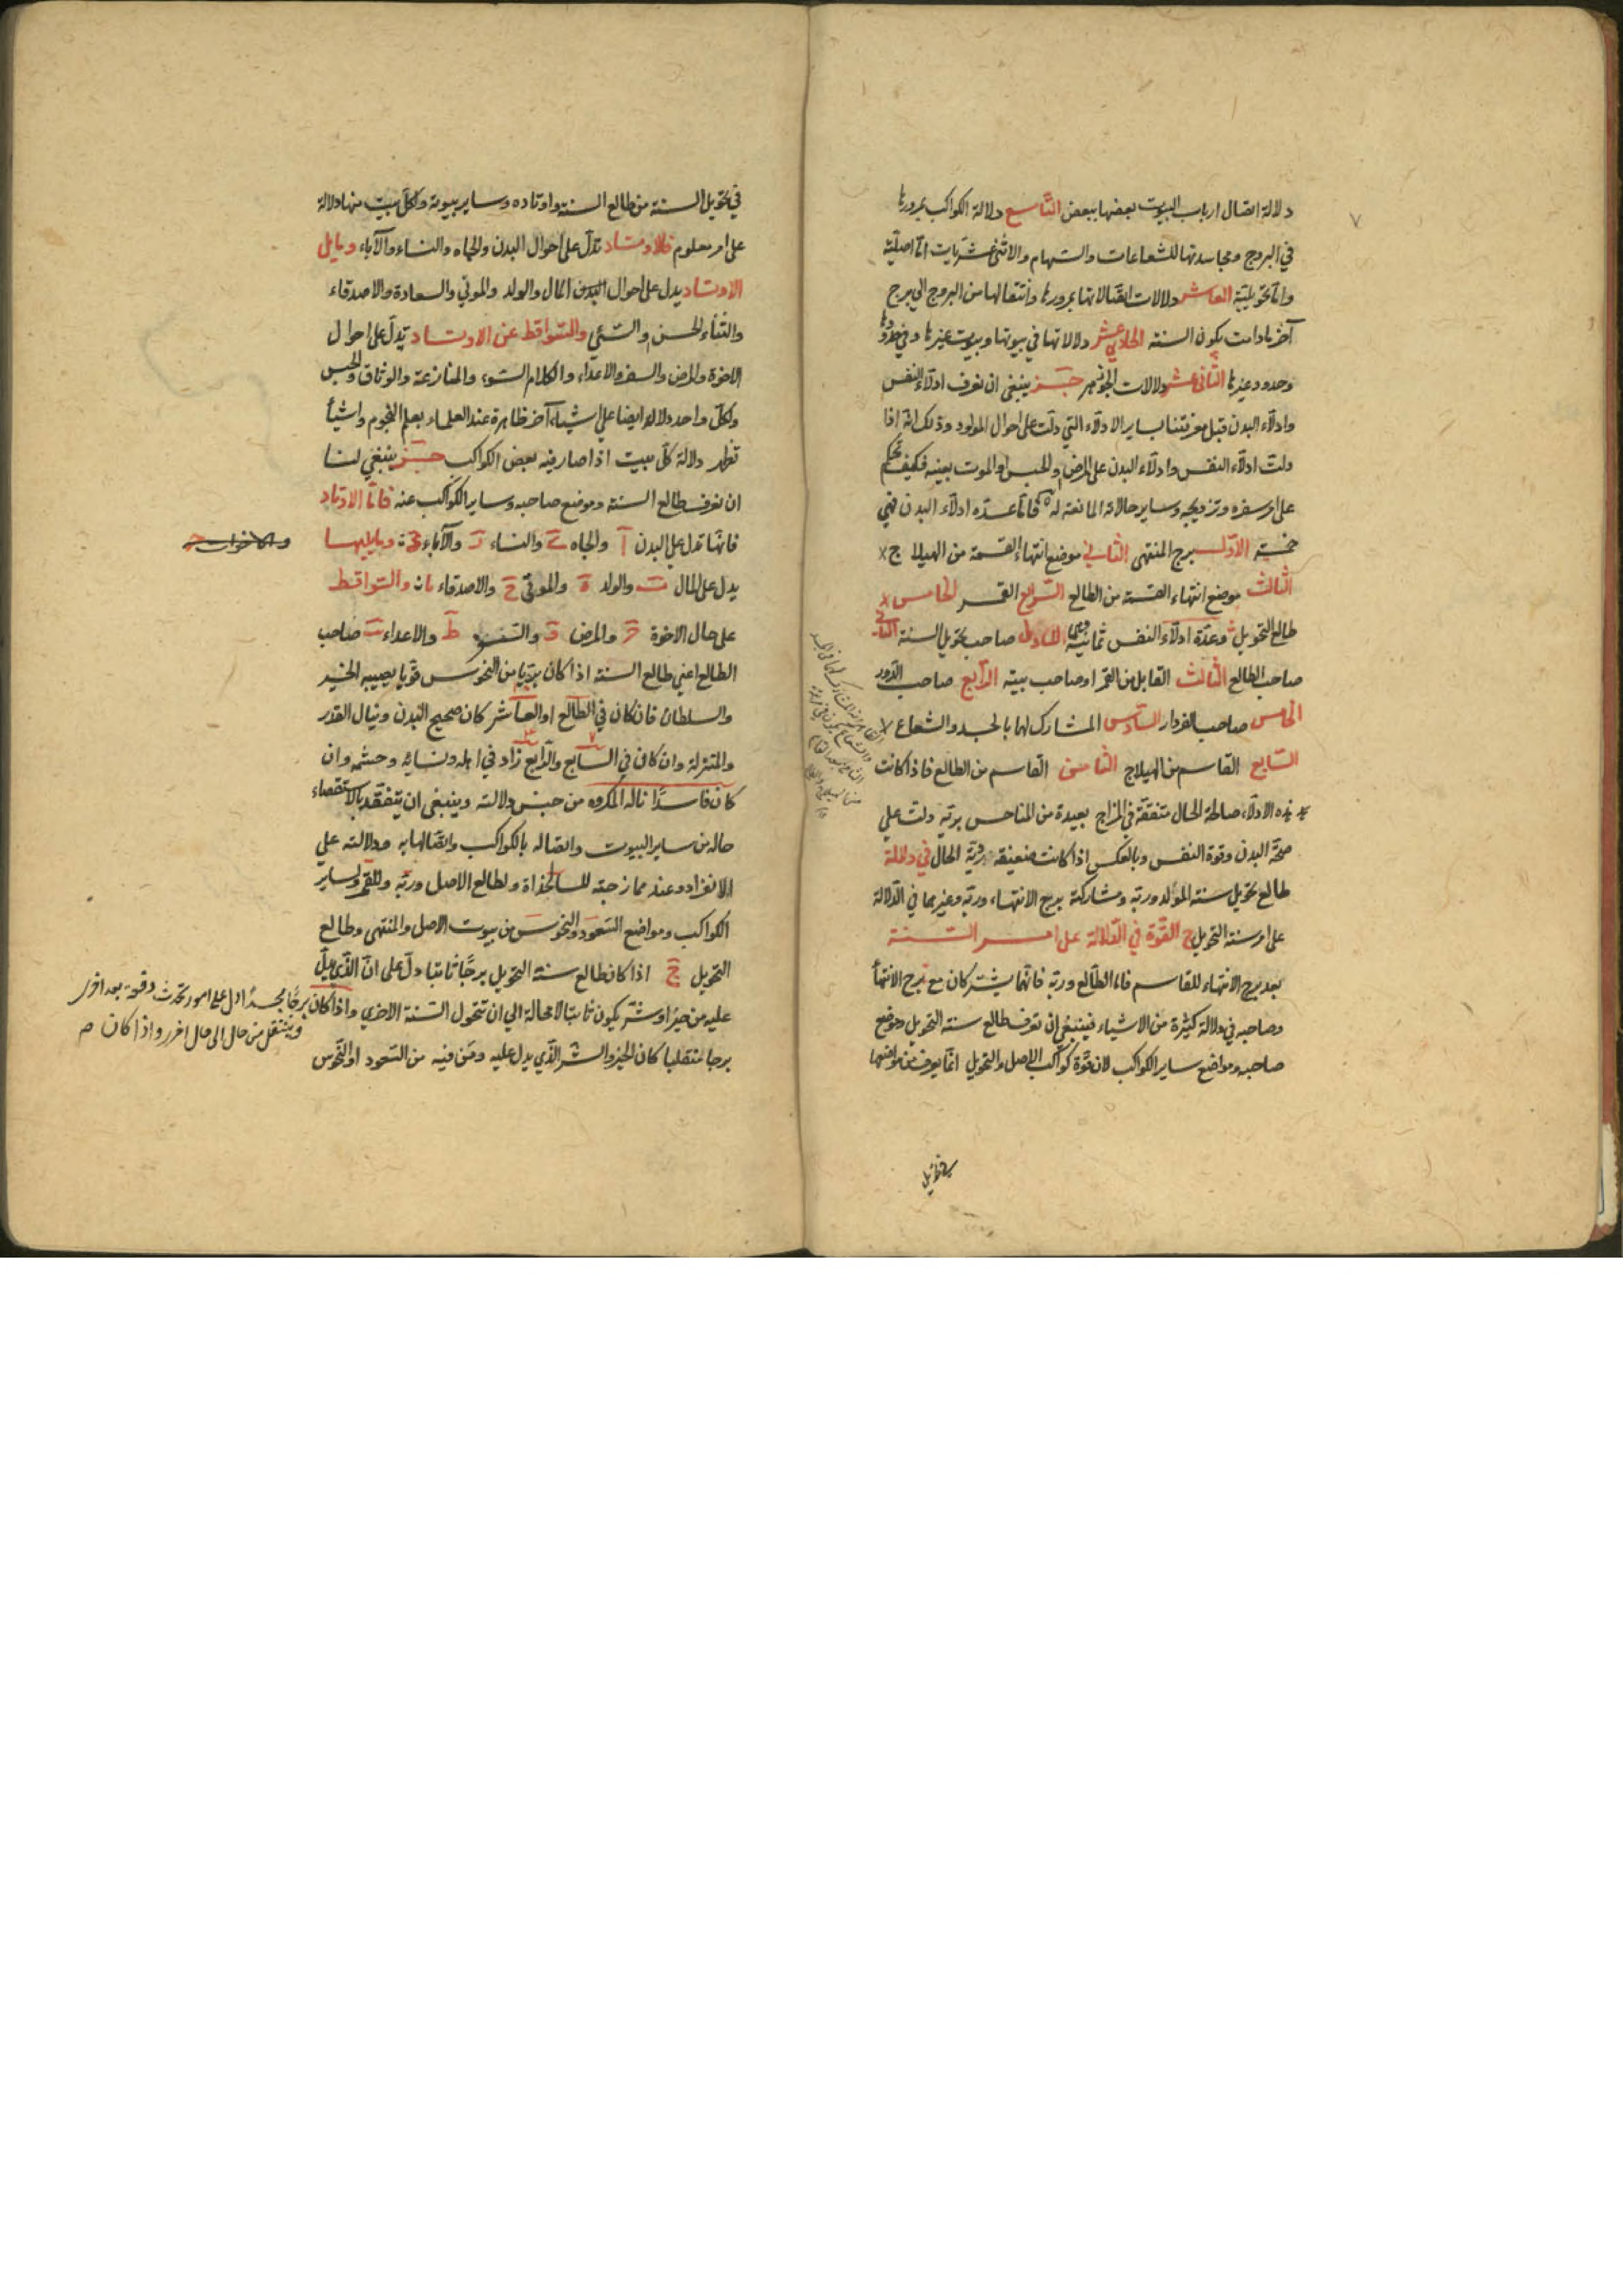 دلالة اتصال ارباب البيوت بعضها ببعض التاسع دلالة الكواكب بمرورها
في البروج ومجاسدتها للشعاعات والسهام والاثنى عشريات اما اصلية
واما تحويلية العاشر دلالات اتصالاتها بمرورها وانتقالها من البروج الى برج
آخر مادامت يكون السنة الحادي عشر دلالاتها في بيوتها وبيوت غيرها وفي حدودها
وحدود غيرها الثاني عشر دلالات الجوزهر ينبغي ان نعرف ادلاء النفس
وادلاء البدن قبل معرفتنا بساير الادلاء التي دلت على احوال المولود وذلك انه اذا
دلت ادلاء النفس وادلاء البدن على المرض والحبس او الموت بعينه فكيف نحكم
على امر سفره وتزويجه وساير حالاته المانعة له فاما عدة ادلاء البدن فهي
خمسة الاول برج المنتهى الثاني موضع انتهاء القسمة من الهيلاج
الثالث موضع انتهاء القسمة من الطالع الرابع القمر الخامس
طالع التحويل وعدة ادلاء النفس ثمانية الاول صاحب تحويل السنة الثاني
صاحب الطالع الثالث القابل من القمر او صاحب بيته الرابع صاحب الدور
الخامس صاحب الفردار السادس المشارك لهما بالجسد والشعاع
السابع القاسم من الهيلاج الثامن القاسم من الطالع فاذا كانت
هذه الادلاء صالحة الحال متفقة في المزاج بعيدة من المناحس برية دلت على
صحة البدن وقوة النفس وبالعكس اذا كانت ضعيفة ردية الحال في دلالة
طالع تحويل سنة المولد وربه ومشاركة برج الانتهاء وربه وغيرهما في الدلالة
على امر سنة التحويل ج القوة في الدلالة على امر السنة
بعد برج الانتهاء للقاسم فاما الطالع وربه فانهما يشتركان مع برج الانتهاء
وصاحبه في دلالة كثيرة من الاشياء فينبغي ان نعرف طالع سنة التحويل وموضع
صاحبه ومواضع ساير الكواكب لان قوة كواكب الاصل والتحويل انما يعرف من مواضعها
في تحويل
في تحويل السنة من طالع السنة واوتاده وساير بيوته ولكل بيت منها دلالة
على امر معلوم فالاوتاد تدل على احوال البدن والجاه والنساء والآباء ومايلي
الاوتاد يدل على احوال المال والولد والموتي والسعادة والاصدقاء
والثناء الحسن والسئي والسواقط عن الاوتاد تدل على احوال
الاخوة والمرض والسفر والاعداء والكلام السوء والمنازعة والوثاق والحبس
ولكل واحد دلالة ايضا على اشياء آخر ظاهرة عند العلماء بعلم النجوم واشيأ
تظهر دلالة كل بيت اذا صار فيه بعض الكواكب ينبغي لنا
ان نعرف طالع السنة وموضع صاحبه وساير الكواكب عنه فاما الاوتاد
فانها تدل على البدن آ والجاه ى والنساء ز والآباء د ومايليها
والاخوات
يدل على المال ب والولد ه والموتي ح والاصدقاء يا والسواقط
على حال الاخوة ج والمرض و والسفر ط والاعداء يب صاحب
الطالع اعني طالع السنة اذا كان بريا من النحوس قويا يصيبه الخير
والسلطان فان كان في الطالع او العاشر كان صحيح البدن وينال القدر
والمنزلة وان كان في السابع والرابع زاد في اهله ونسايه وحشمه وان
كان فاسدا ناله المكروه من جنس دلالته وينبغي ان يتفقد بالاستقصاء
حاله من ساير البيوت واتصاله بالكواكب واتصالها به ودلالته على
الانفراد وعند ممازجته للسالخداة ولطالع الاصل وربه وللقمر ولساير
الكواكب ومواضع السعود والنحوس من بيوت الاصل والمنتهى وطالع
التحويل ج اذا كان طالع سنة التحويل برجا ثابتا دل على ان الذي يدل
عليه من خير او شر يكون ثابتا لا محالة الى ان تتحول السنة الاخرى واذا كان
برجا مجسدا دل على امور تحدث دفعة بعد اخرى
وينتقل من حال الى حال اخر واذا كان
برجا منقلبا كان الخير والشر الذي يدل عليه ومن فيه من السعود او النحوس